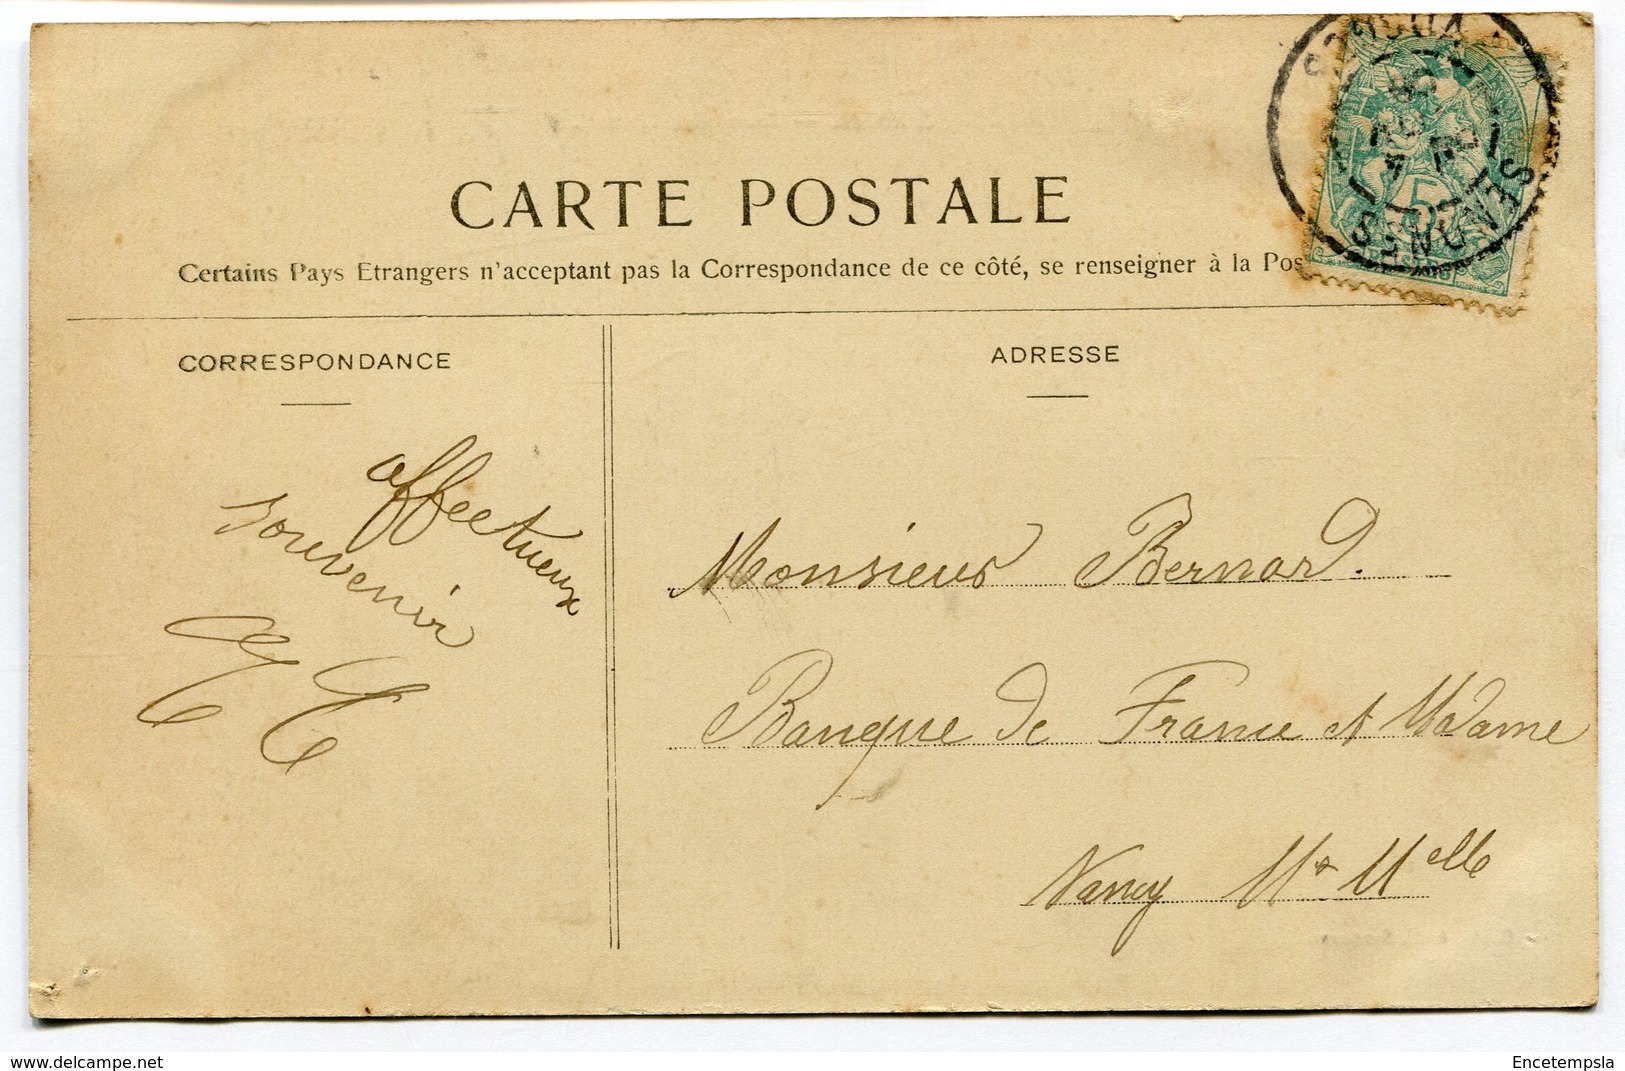 CARTE POSTALE
Certains Pays Etrangers n'acceptant pas la Correspondance de ce côté, se renseigner à la Pos
CORRESPONDANCE
ADRESSE
affectueux
souvenir
Monsieur Bernard.
Banque de France et Madame
Nancy Mr Melle
SENONES
VOSGES
5
www.delcampe.net
Encetempsla